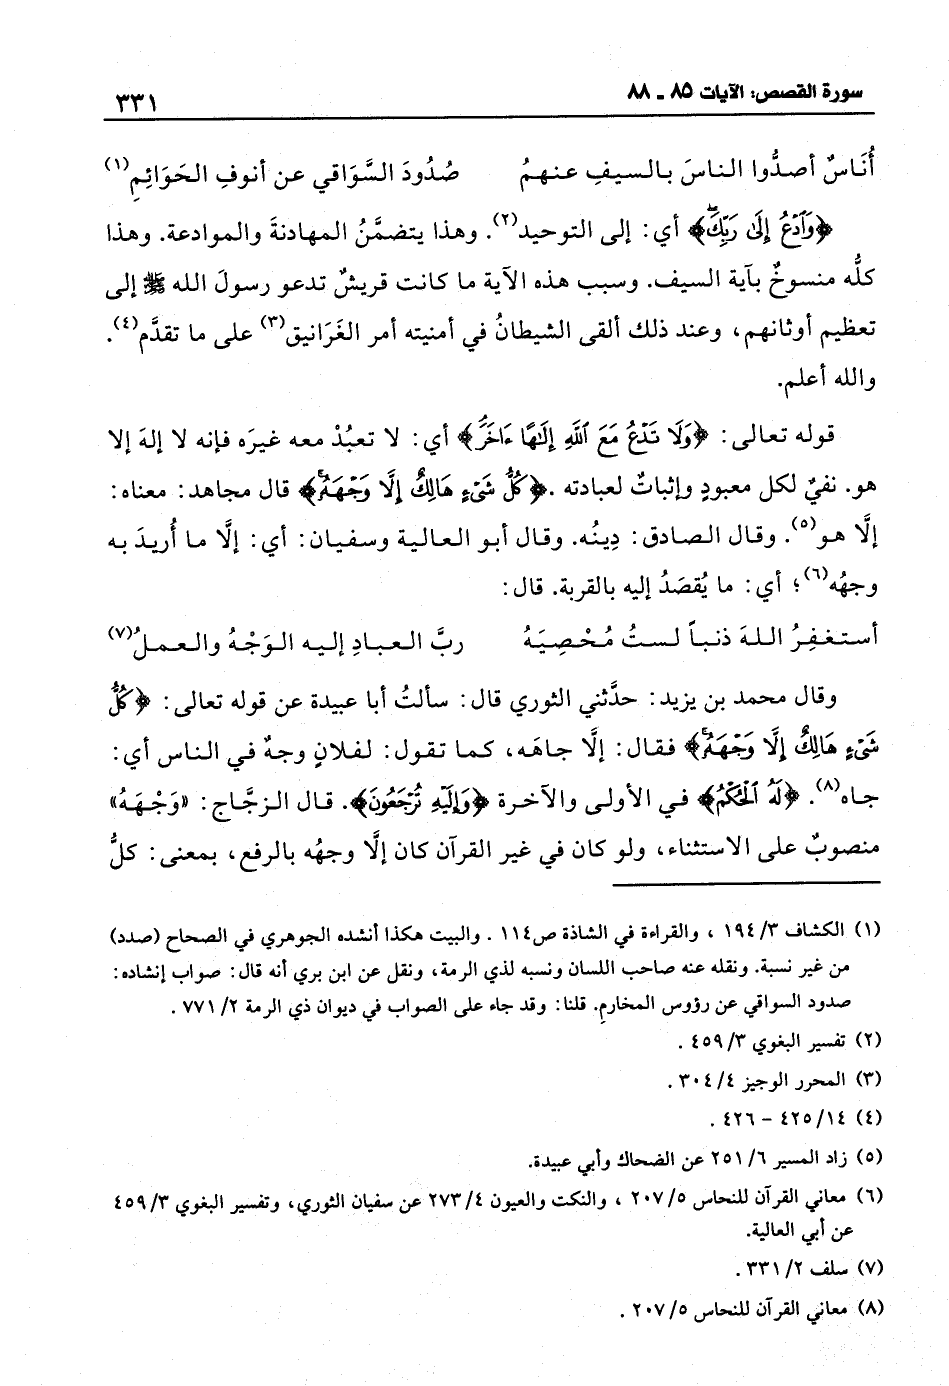 سورة القصص: الآيات ٨٥ ـ ٨٨
٣٣١
أُنَاسٌ أصدُّوا الناسَ بالسيفِ عنهمُ صُدُودَ السَّوَاقي عن أنوفِ الحَوَائِمِ(١)
﴿وَٱدْعُ إِلَىٰ رَبِّكَۖ﴾ أي: إلى التوحيد(٢). وهذا يتضمَّنُ المهادنةَ والموادعة. وهذا
كلُّه منسوخٌ بآية السيف. وسبب هذه الآية ما كانت قريشٌ تدعو رسولَ الله ﷺ إلى
تعظيم أوثانهم، وعند ذلك ألقى الشيطانُ في أمنيته أمر الغَرَانيق(٣) على ما تقدَّم(٤).
والله أعلم.
قوله تعالى: ﴿وَلَا تَدْعُ مَعَ ٱللَّهِ إِلَٰهًا ءَاخَرَۘ﴾ أي: لا تعبُدْ معه غيرَه فإنه لا إلهَ إلا
هو. نفيٌ لكل معبودٍ وإثباتٌ لعبادته. ﴿كُلُّ شَىْءٍ هَالِكٌ إِلَّا وَجْهَهُۥۚ﴾ قال مجاهد: معناه:
إلَّا هو(٥). وقال الصادق: دِينُه. وقال أبو العالية وسفيان: أي: إلَّا ما أُريدَ به
وجهُه(٦)؛ أي: ما يُقصَدُ إليه بالقربة. قال:
أستغفِرُ اللهَ ذنباً لستُ مُحْصِيَهُ ربَّ العبادِ إليه الوَجْهُ والعملُ(٧)
وقال محمد بن يزيد: حدَّثني الثوري قال: سألتُ أبا عبيدة عن قوله تعالى: ﴿كُلُّ
شَىْءٍ هَالِكٌ إِلَّا وَجْهَهُۥۚ﴾ فقال: إلَّا جاهَه، كما تقول: لفلانٍ وجهٌ في الناس أي:
جاه(٨). ﴿لَهُ ٱلْحُكْمُ﴾ في الأولى والآخرة ﴿وَإِلَيْهِ تُرْجَعُونَ﴾. قال الزجَّاج: «وَجْهَهُ»
منصوبٌ على الاستثناء، ولو كان في غير القرآن كان إلَّا وجهُه بالرفع، بمعنى: كلُّ
(١) الكشاف ٣/ ١٩٤ ، والقراءة في الشاذة ص١١٤ . والبيت هكذا أنشده الجوهري في الصحاح (صدد)
من غير نسبة. ونقله عنه صاحب اللسان ونسبه لذي الرمة، ونقل عن ابن بري أنه قال: صواب إنشاده:
صدود السواقي عن رؤوس المخارمِ. قلنا: وقد جاء على الصواب في ديوان ذي الرمة ٢/ ٧٧١ .
(٢) تفسير البغوي ٣/ ٤٥٩ .
(٣) المحرر الوجيز ٤/ ٣٠٤ .
(٤) ١٤/ ٤٢٥ – ٤٢٦ .
(٥) زاد المسير ٦/ ٢٥١ عن الضحاك وأبي عبيدة.
(٦) معاني القرآن للنحاس ٥/ ٢٠٧ ، والنكت والعيون ٤/ ٢٧٣ عن سفيان الثوري، وتفسير البغوي ٣/ ٤٥٩
عن أبي العالية.
(٧) سلف ٢/ ٣٣١ .
(٨) معاني القرآن للنحاس ٥/ ٢٠٧ .